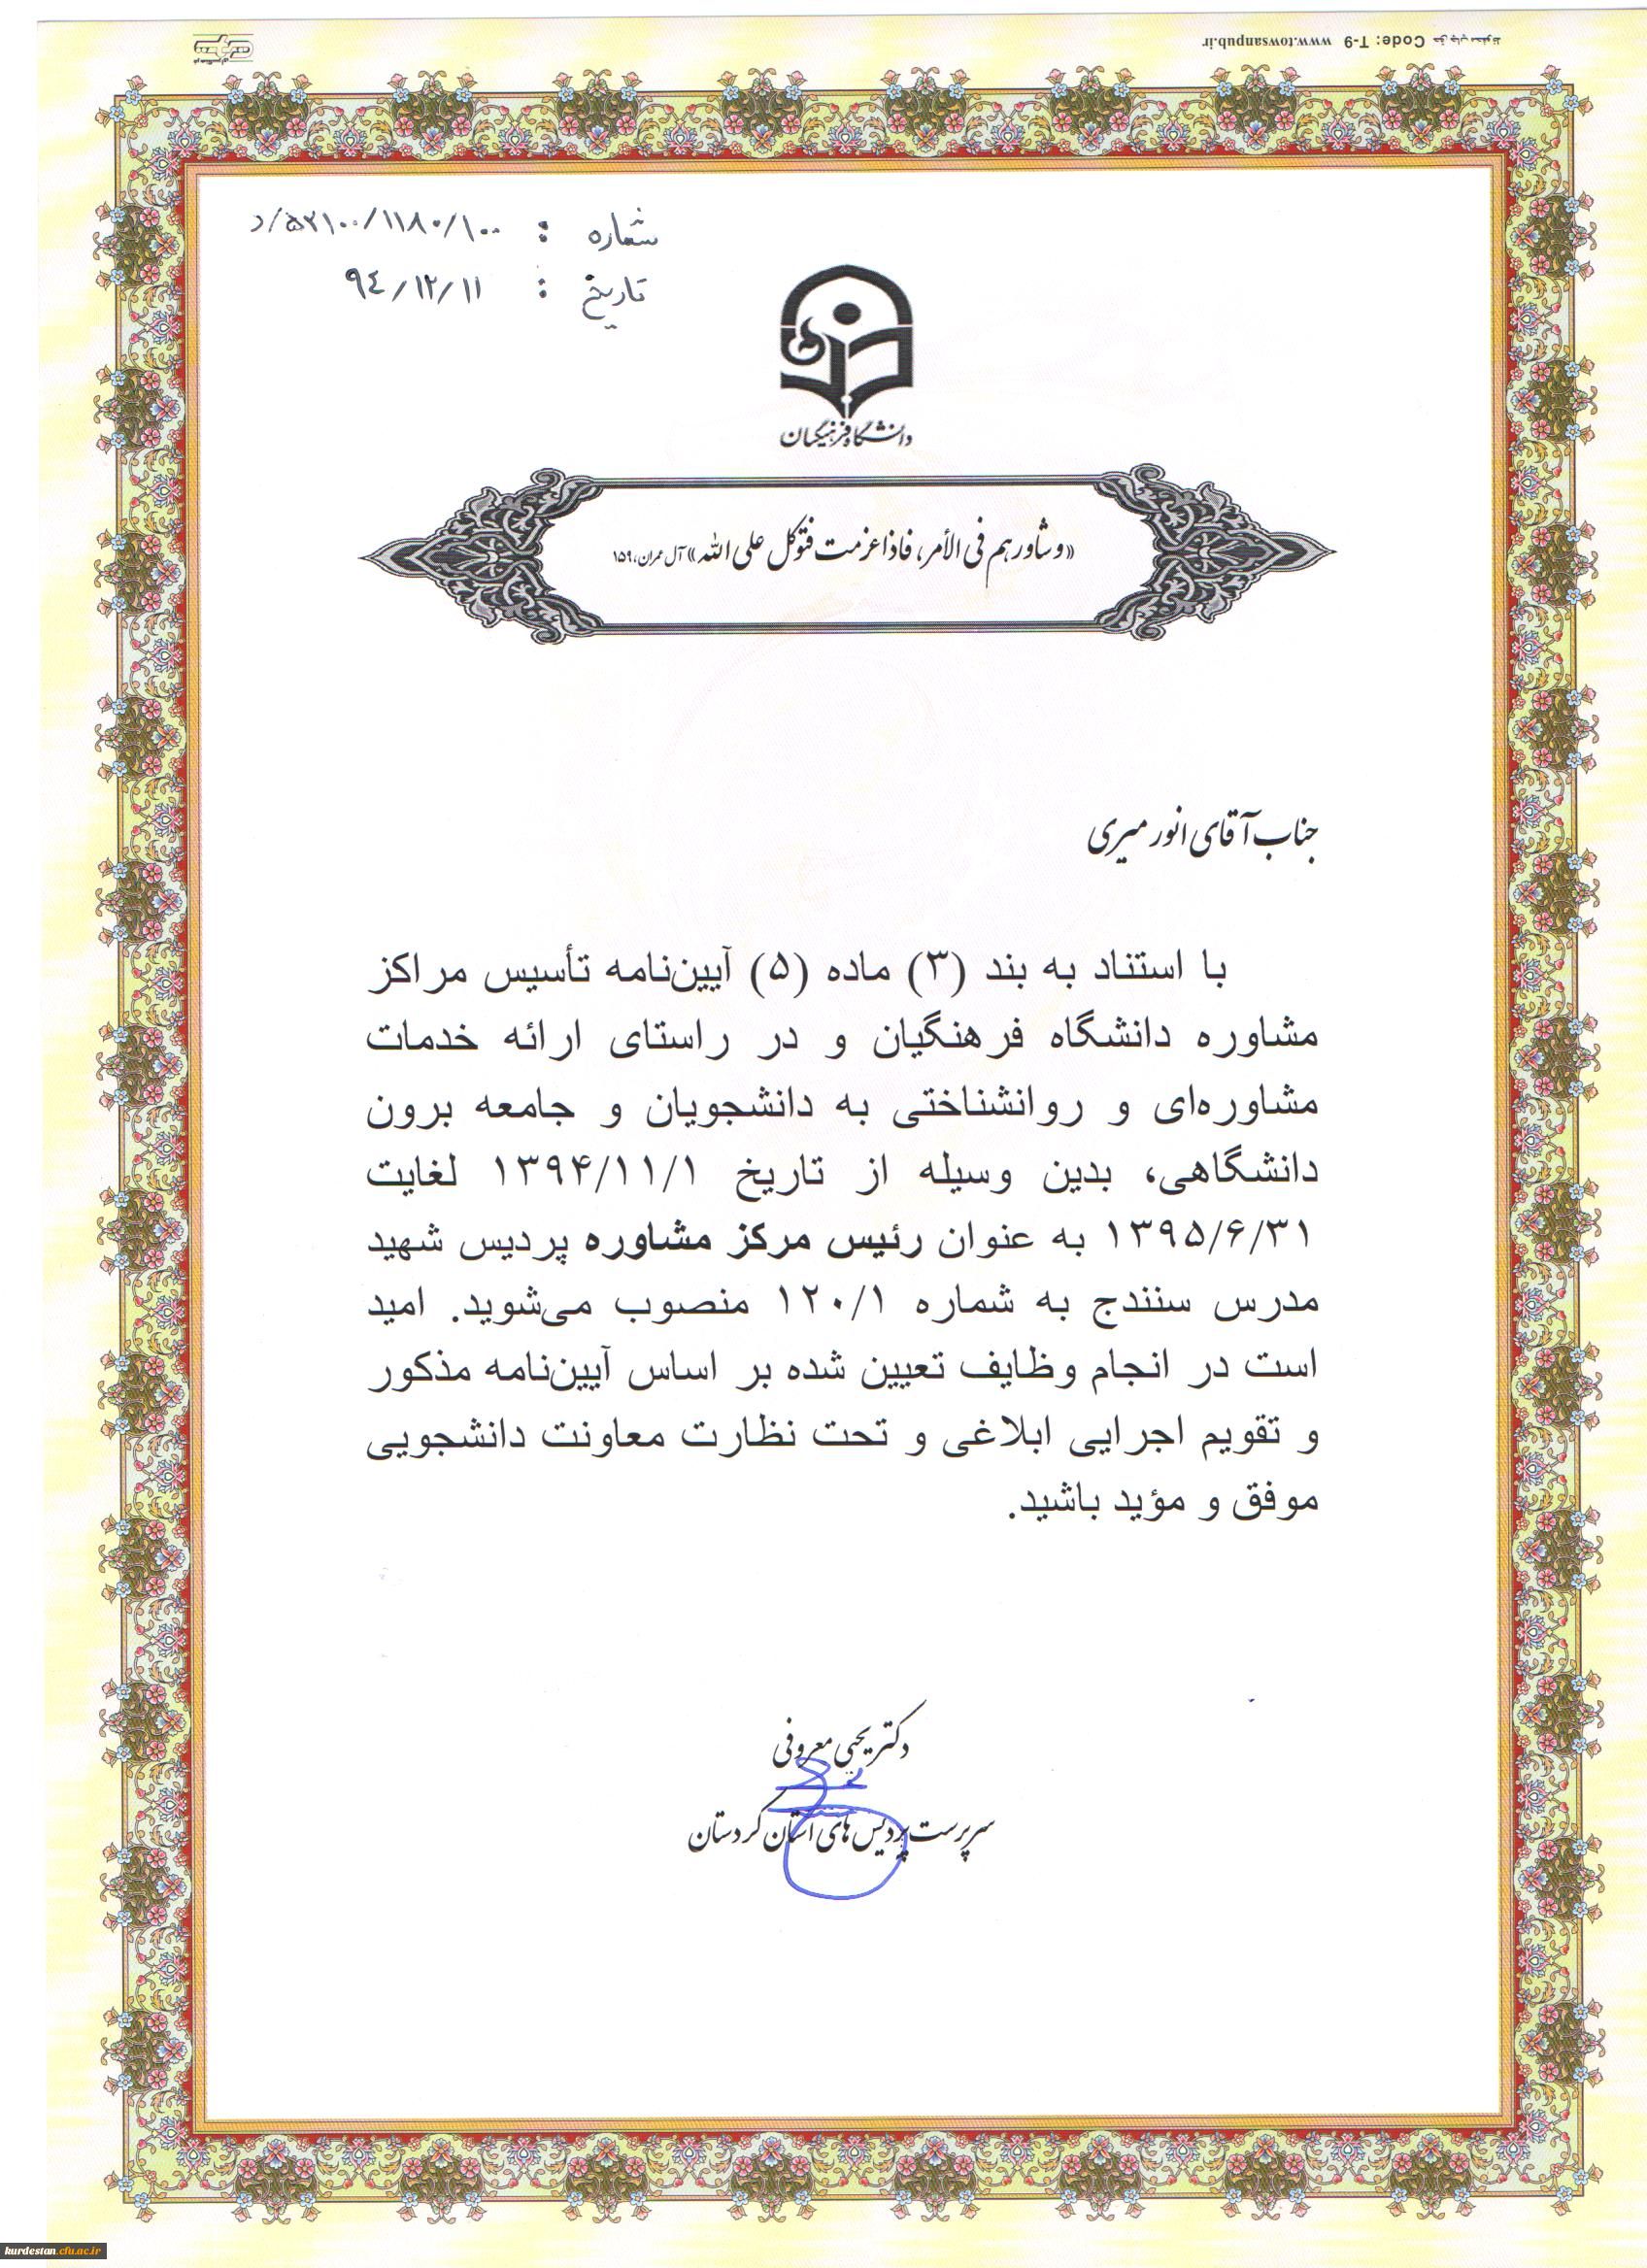 www.towsanpub.ir Code: T-9
شماره : ۵۲۱۰۰/۱۱۸۰/۱۰۰/د
تاریخ : ۹٤/۱۲/۱۱
دانشگاه فرهنگیان
«وشاورهم فی الأمر، فاذا عزمت فتوکل علی الله» آل عمران، ۱۵۹
جناب آقای انور میری
با استناد به بند (۳) ماده (۵) آیین‌نامه تأسیس مراکز
مشاوره دانشگاه فرهنگیان و در راستای ارائه خدمات
مشاوره‌ای و روانشناختی به دانشجویان و جامعه برون
دانشگاهی، بدین وسیله از تاریخ ۱۳۹۴/۱۱/۱ لغایت
۱۳۹۵/۶/۳۱ به عنوان رئیس مرکز مشاوره پردیس شهید
مدرس سنندج به شماره ۱۲۰/۱ منصوب می‌شوید. امید
است در انجام وظایف تعیین شده بر اساس آیین‌نامه مذکور
و تقویم اجرایی ابلاغی و تحت نظارت معاونت دانشجویی
موفق و مؤید باشید.
دکتر یحیی معروفی
سرپرست پردیس های استان کردستان
kurdestan.cfu.ac.ir